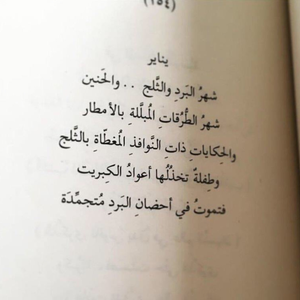 (١٥٤)
يناير
شهرُ البَردِ والثَّلج .. والحَنين
شهرُ الطُّرُقاتِ المُبلَّلة بالأمطار
والحكاياتِ ذاتِ النَّوافذِ المُغطَّاة بالثَّلج
وطفلةٌ تخذلُها أعوادُ الكِبريت
فتموتُ في أحضانِ البَردِ مُتجمِّدَة